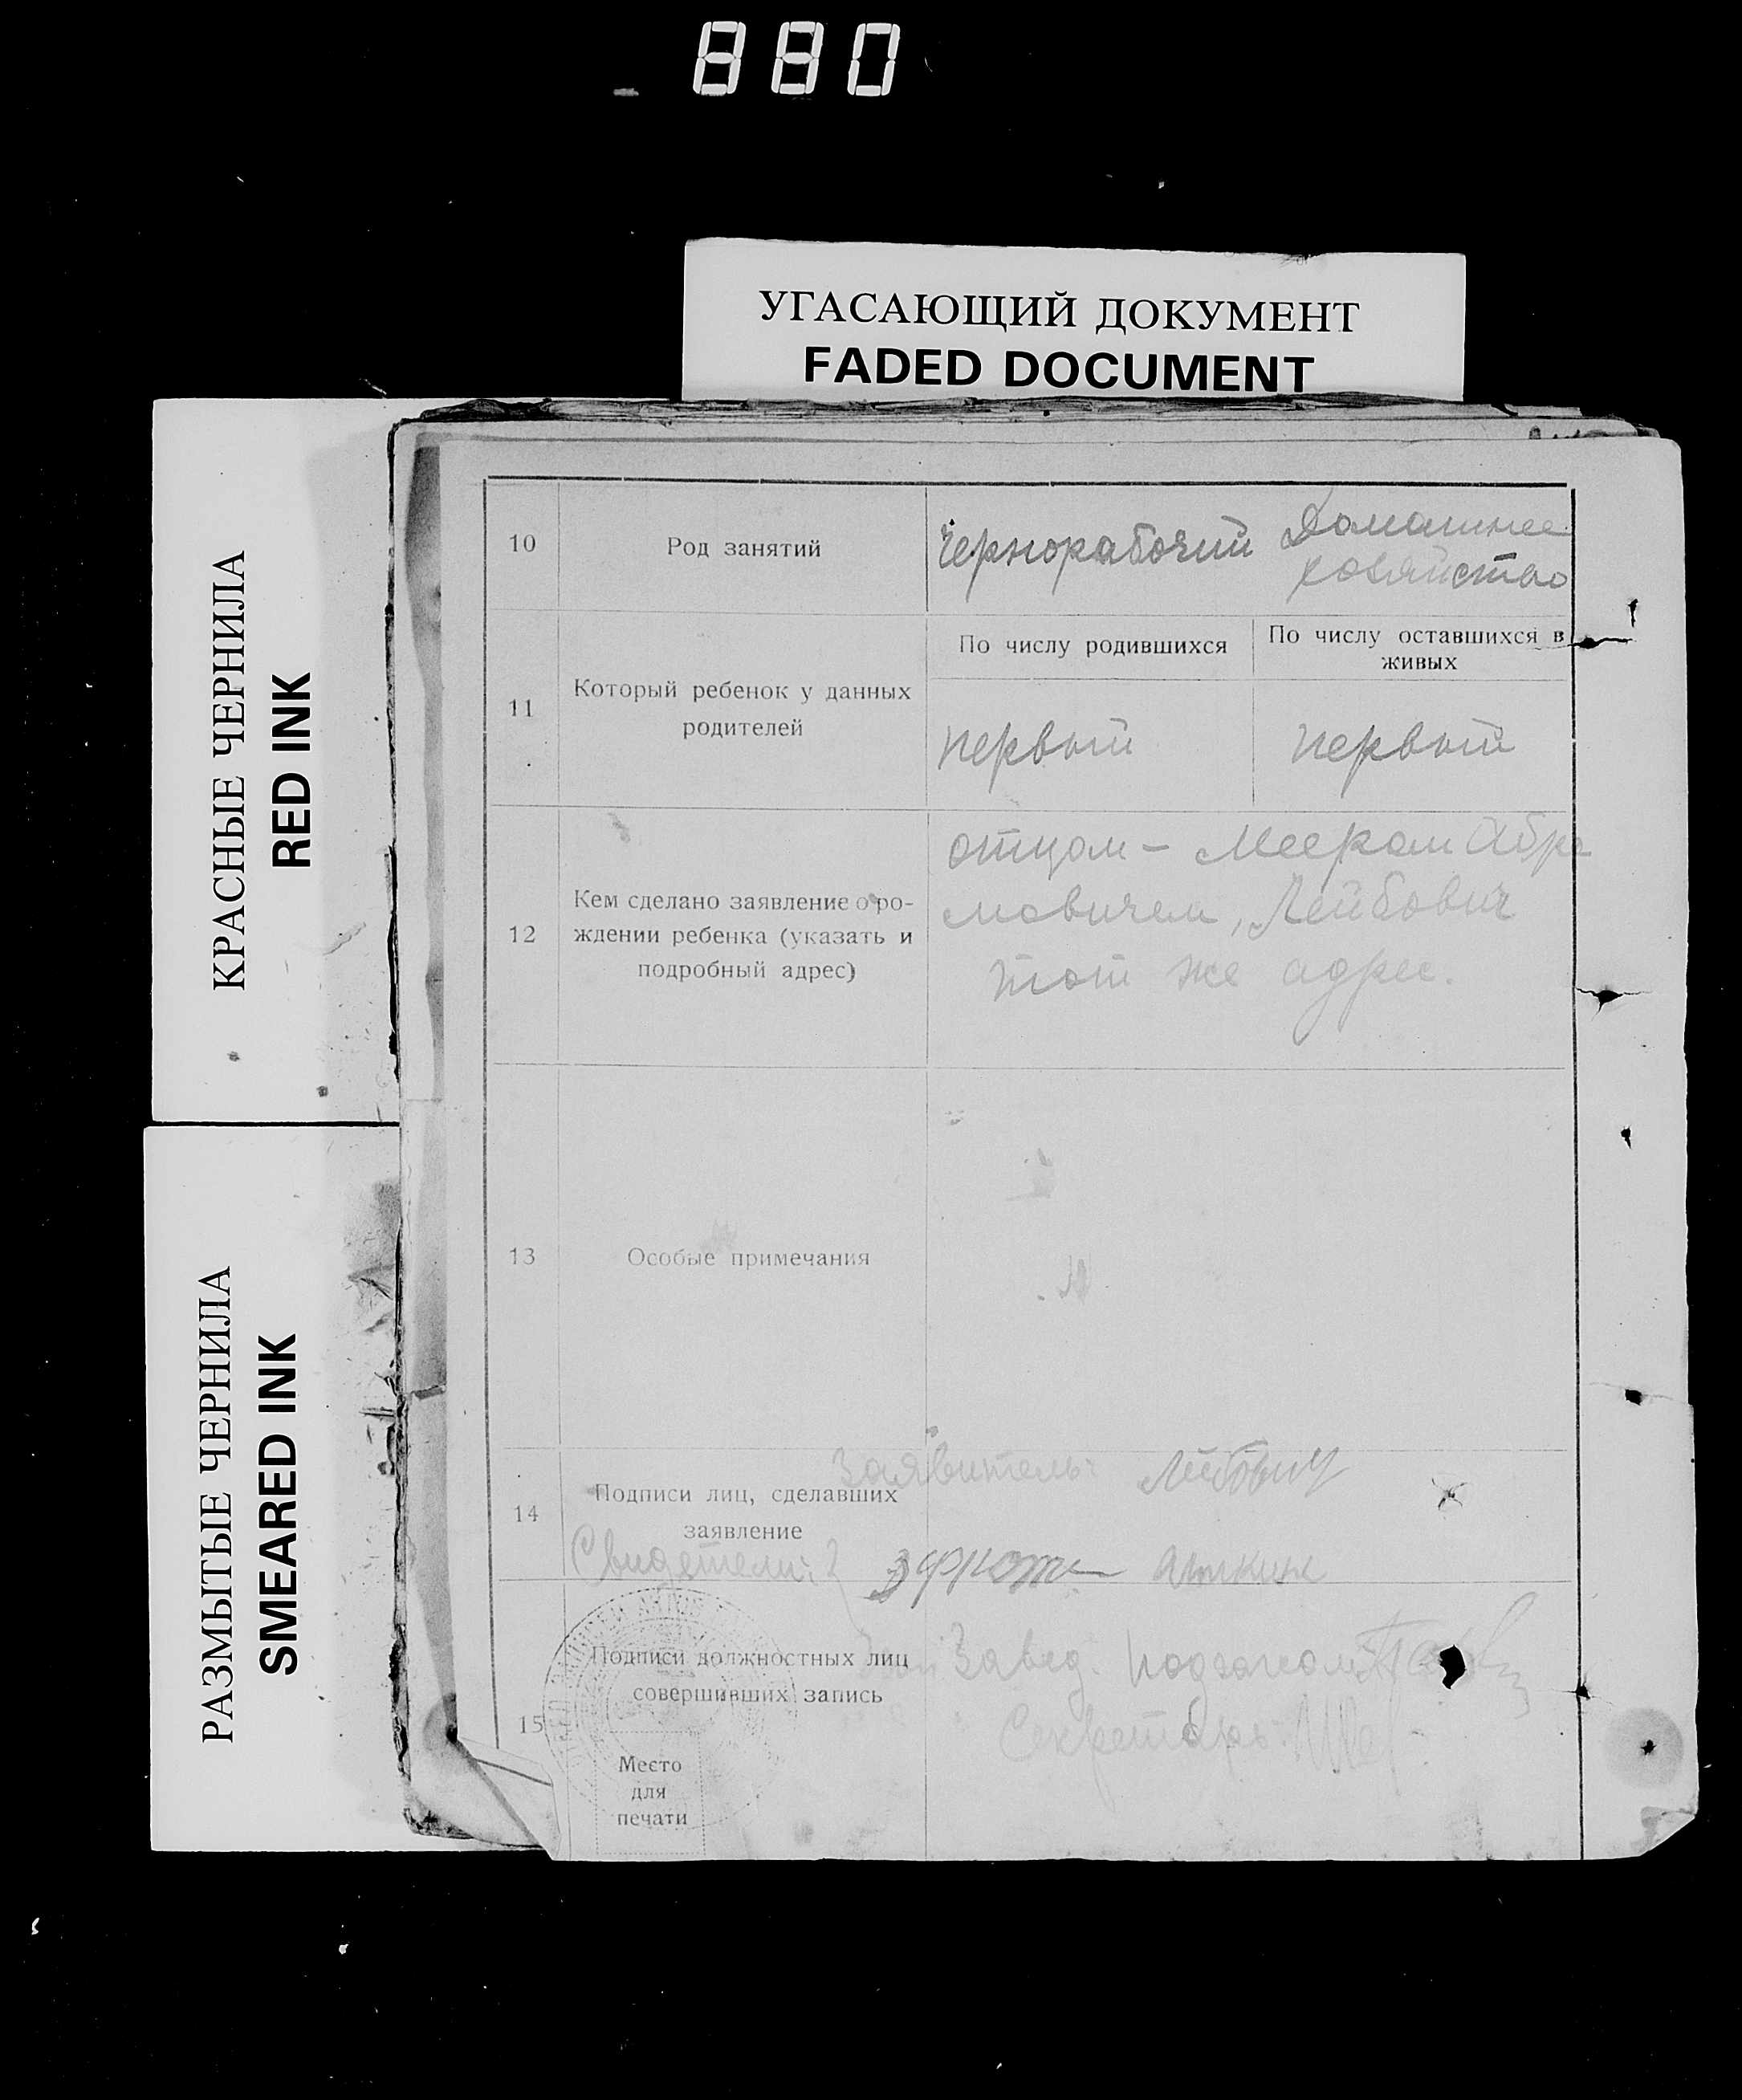 880
УГАСАЮЩИЙ ДОКУМЕНТ
FADED DOCUMENT
КРАСНЫЕ ЧЕРНИЛА
RED INK
РАЗМЫТЫЕ ЧЕРНИЛА
SMEARED INK
10 Род занятий Чернорабочий Домашнее
хозяйство
11 Который ребенок у данных
родителей
По числу родившихся По числу оставшихся в
живых
первый первый
12 Кем сделано заявление о ро-
ждении ребенка (указать и
подробный адрес)
отцом – Меером Абра
мовичем, Лейбович
тот же адрес.
13 Особые примечания
Заявитель: Лейбович
14 Подписи лиц, сделавших
заявление
Свидетели:
15 Подписи должностных лиц
совершивших запись
Завед. подзагсом
Секретарь
Место
для
печати